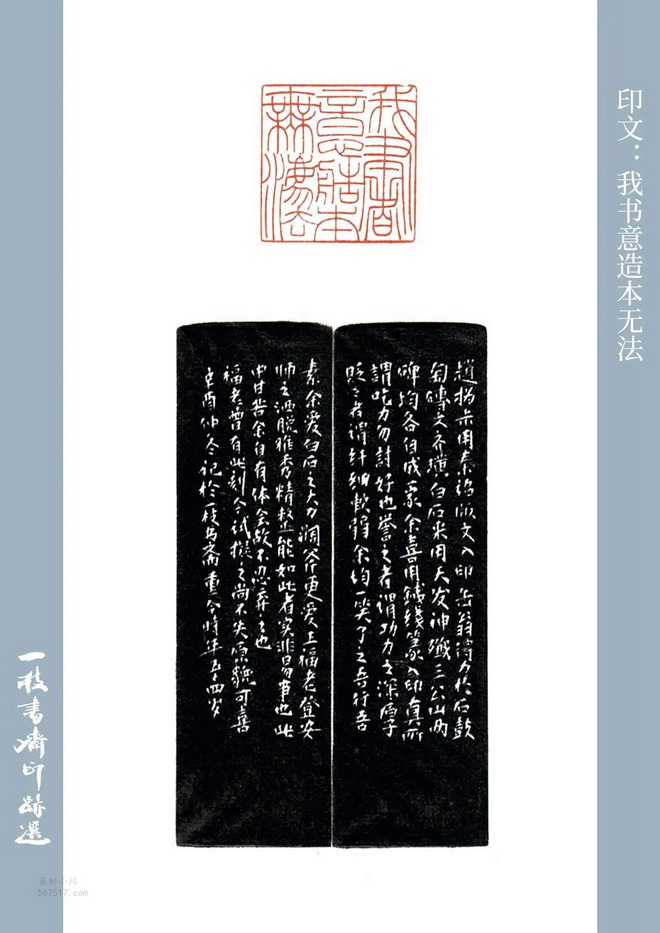 印文：我书意造本无法
我書
意造本
無法
趙撝叔用秦詔版文入印缶翁得力於石鼓
匋磚文齐璜白石采用天发神讖三公山两
碑均各自成家余喜用鐵綫篆入印真所
謂吃力勿討好也譽之者謂功力之深厚
貶之者謂纤細軟弱余均一笑了之吾行吾
素余爱白石之大刀濶斧更爱王福老登安
师之洒脱雅秀精整能如此者实非易事也此
中甘苦余自有体会故不忍弃之也
福老曾有此刻今试擬之尚不失原貌可喜
辛酉仲冬记於一枝书斋重今时年五十四岁
一枝書齋印跡選
篆刻小站
567517.com